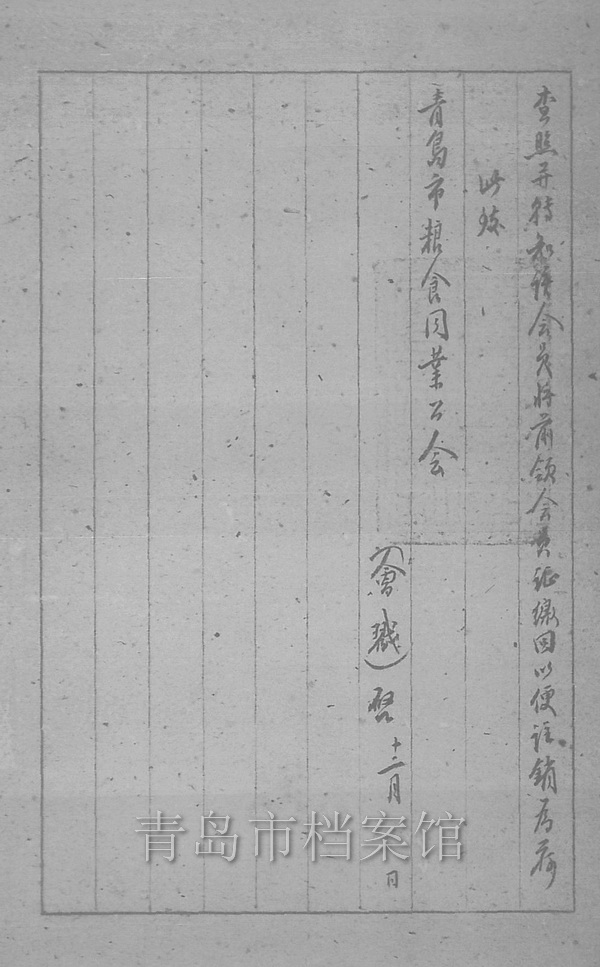 查照并转知该会员将前领会员证缴回以便注銷为荷
此致
青島市粮食同業公会
（會戳）啓 十二月 日
青岛市档案馆